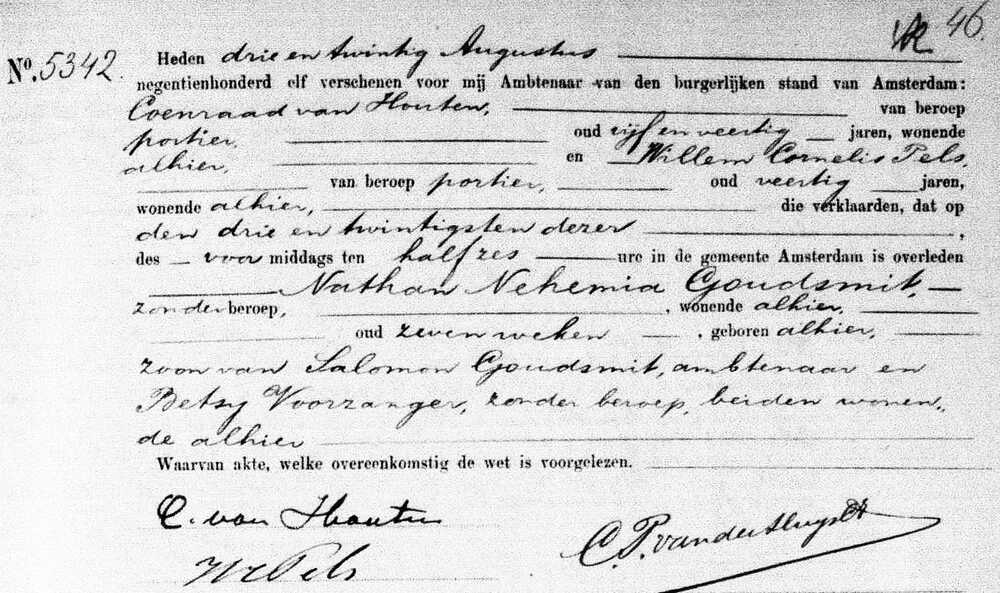 46.
No. 5342. Heden drie en twintig Augustus
negentienhonderd elf verschenen voor mij Ambtenaar van den burgerlijken stand van Amsterdam:
Coenraad van Houten, van beroep
portier, oud vijf en veertig jaren, wonende
alhier, en Willem Cornelis Pels,
van beroep portier, oud veertig jaren,
wonende alhier, die verklaarden, dat op
den drie en twintigsten dezer,
des voor middags ten half zes ure in de gemeente Amsterdam is overleden
Nathan Nehemia Goudsmit,
zonder beroep, wonende alhier,
oud zeven weken, geboren alhier,
zoon van Salomon Goudsmit, ambtenaar en
Betsy Voorzanger, zonder beroep, beiden wonen„
de alhier
Waarvan akte, welke overeenkomstig de wet is voorgelezen.
C. van Houten
Pels
C. P. van der